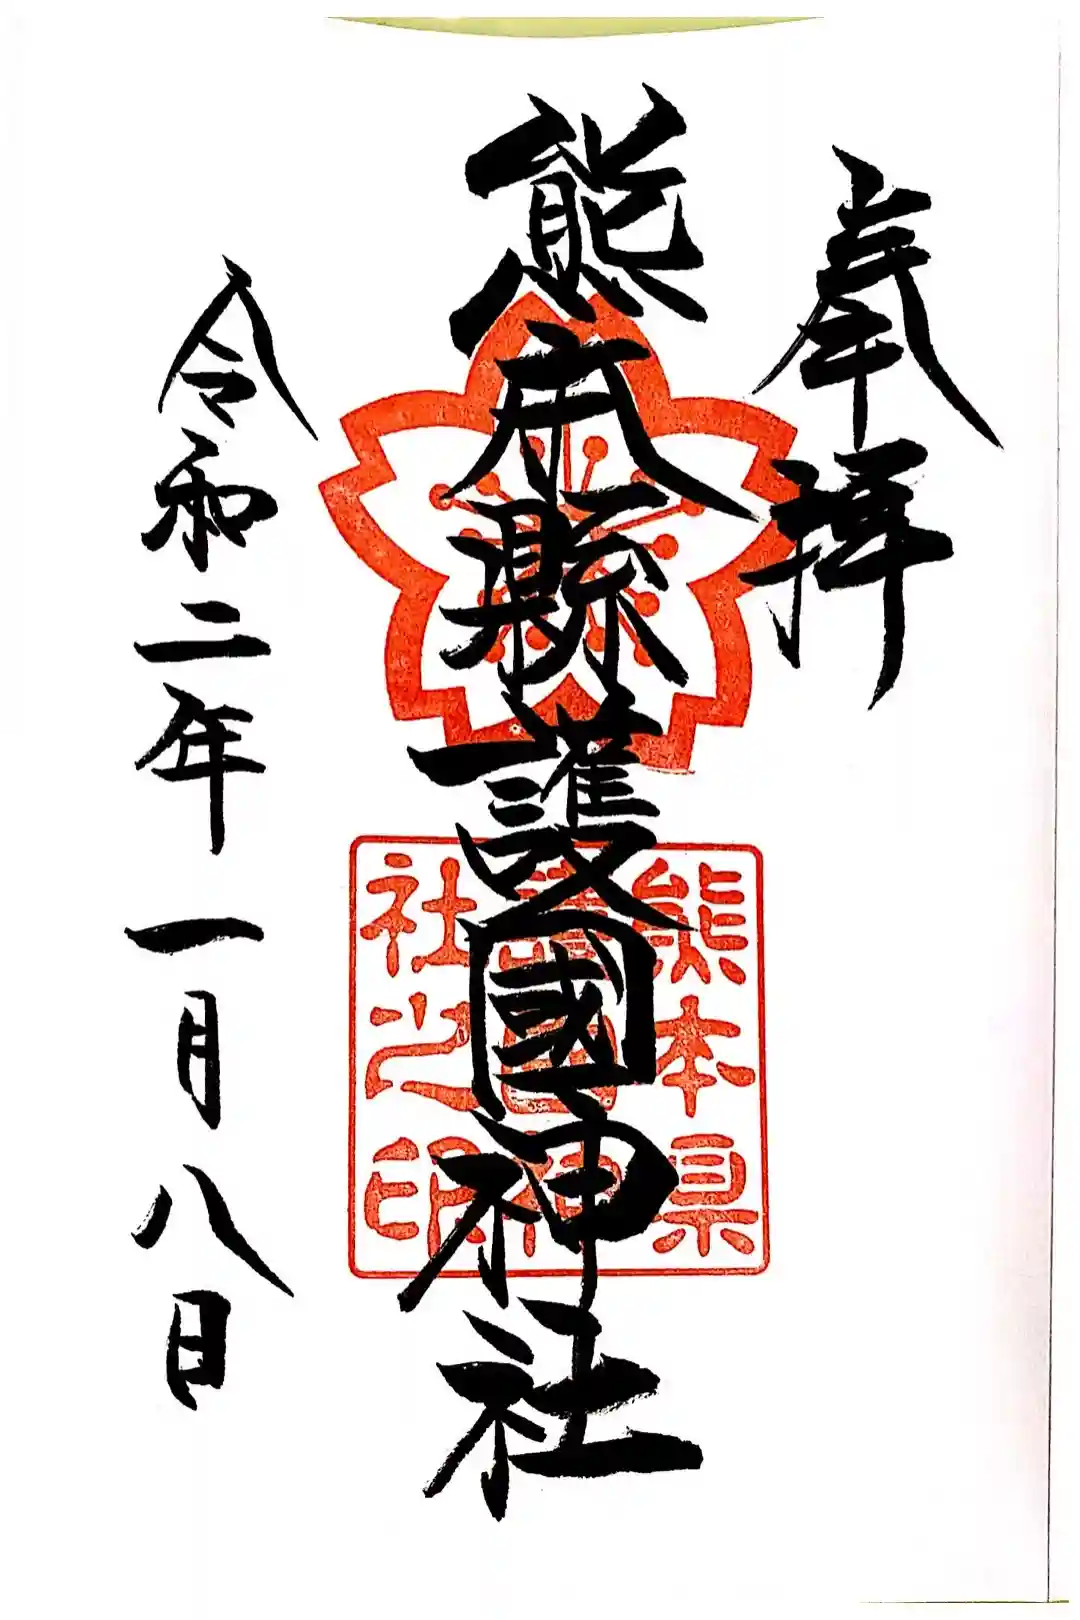 奉拝
熊本縣護國神社
熊本県
護国神
社之印
令和二年一月八日